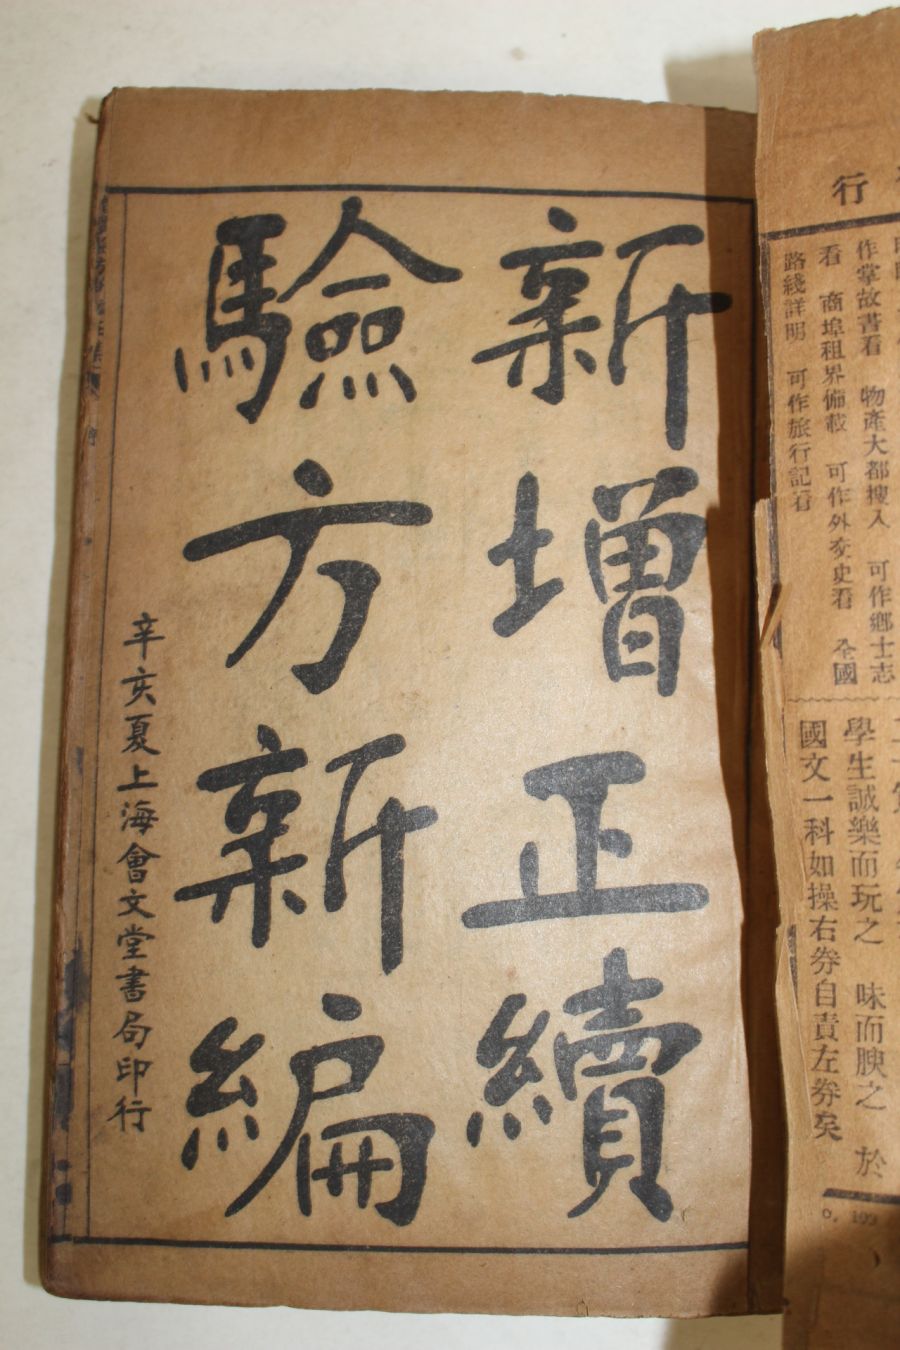 行
作掌故書看　物產大都搜入　可作鄉土志
看　商埠租界備載　可作外交史看　全國
路綫詳明　可作旅行記看
學生誠樂而玩之　味而腴之　於
國文一科如操右券自責左券矣
新增正續
驗方新編
辛亥夏上海會文堂書局印行